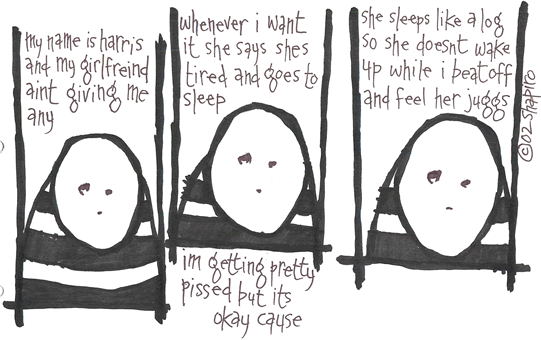 my name is harris
and my girlfreind
aint giving me
any
whenever i want
it she says shes
tired and goes to
sleep
im getting pretty
pissed but its
okay cause
she sleeps like a log
so she doesnt wake
up while i beat off
and feel her juggs
©02 shapiro